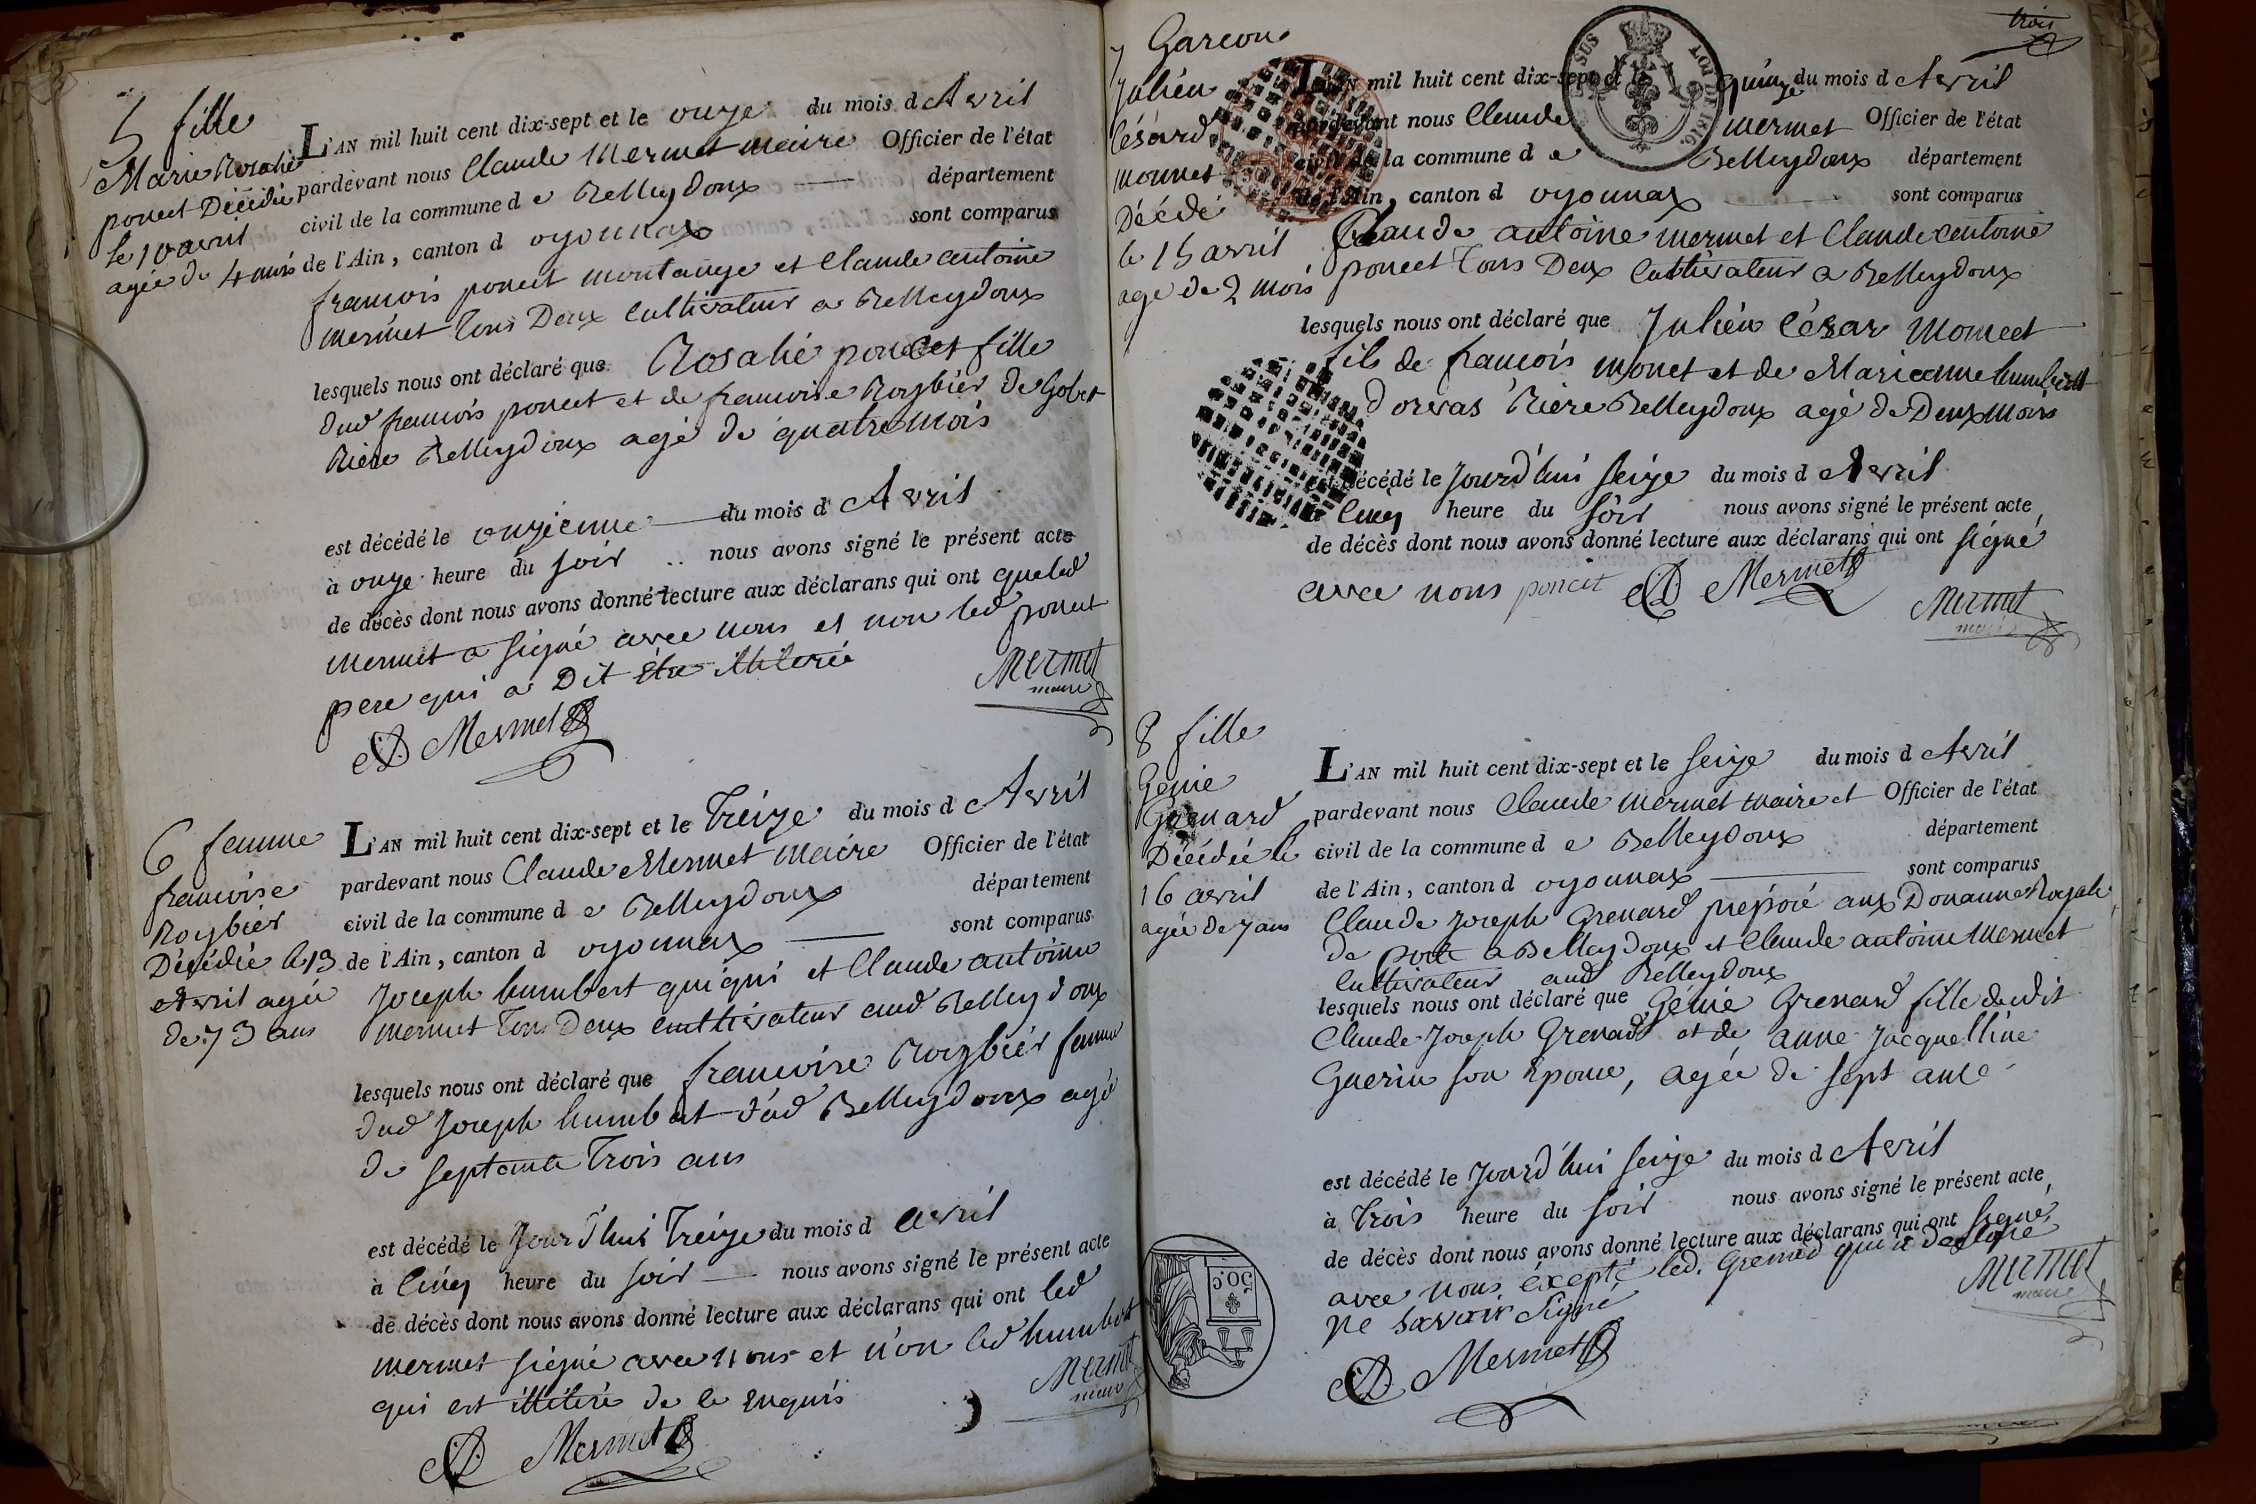 5 fille
Marie Rosalie
poncet Décédée
le 10 avril
agée de 4 mois
L'AN mil huit cent dix-sept et le onze du mois d Avril
pardevant nous Claude Mermet maire Officier de l'état
civil de la commune d e Belleydoux département
de l'Ain, canton d oyonnax sont comparus
francois poncet montange et Claude antoine
mermet Tous Deux Cultivateur a Belleydoux
lesquels nous ont déclaré que Rosalie poncet fille
dud francois poncet et de francoise Roybier de Gobet
Rière Belleydoux agé de quatre mois
est décédé le onzienne du mois d Avril
à onze heure du soir nous avons signé le présent acte
de décès dont nous avons donné lecture aux déclarans qui ont queled
mermet a signé avec nous et non led poncet
pere qui a Dit être illiteré
Mermet
maire
Mermet
6 femme
francoise
Roybier
Décédée le 13
Avril agée
de 73 ans
L'AN mil huit cent dix-sept et le Treize du mois d Avril
pardevant nous Claude Mermet maire Officier de l'état
civil de la commune d e Belleydoux département
de l'Ain, canton d oyonnax sont comparus
Joseph humbert quiqui et Claude antoine
mermet Tous Deux cultivateur aud Belleydoux
lesquels nous ont déclaré que francoise Roybier femme
dud Joseph humbert dud Belleydoux agé
de septante Trois ans
est décédé le Jourd'hui Treize du mois d avril
à Cinq heure du soir nous avons signé le présent acte
de décès dont nous avons donné lecture aux déclarans qui ont led
mermet signé avec nous et non led humbert
qui est illiteré de ce enquis
Mermet
maire
Mermet
trois
7 Garcon
Julien
Césard
monnet
Décédé
le 15 avril
age de 2 mois
L'AN mil huit cent dix-sept et le quinze du mois d Avril
pardevant nous Claude mermet Officier de l'état
civil de la commune d e Belleydoux département
de l'Ain, canton d oyonnax sont comparus
Claude antoine mermet et Claude antoine
poncet Tous Deux Cultivateur a Belleydoux
lesquels nous ont déclaré que Julien César Monnet
fils de francois monet et de Marieanne humbert
d'orvas Rière Belleydoux agé de Deux mois
est décédé le Jourd'hui seize du mois d Avril
à Cinq heure du soir nous avons signé le présent acte
de décès dont nous avons donné lecture aux déclarans qui ont signé
avec nous poncet Mermet
Mermet
maire
8 fille
Génie
Grenard
Décédée le
16 avril
agée de 7 ans
L'AN mil huit cent dix-sept et le seize du mois d Avril
pardevant nous Claude mermet maire et Officier de l'état
civil de la commune d e Belleydoux département
de l'Ain, canton d oyonnax sont comparus
Claude Joseph Grenard préposé aux Douanne Royale
de poste a Belleydoux et Claude antoine Mermet
Cultivateur aud Belleydoux
lesquels nous ont déclaré que Génie Grenard fille dudit
Claude Joseph Grenard et de anne Jacquelline
Guerin son Epouse, agée de sept ans
est décédé le Jourd'hui seize du mois d Avril
à trois heure du soir nous avons signé le présent acte
de décès dont nous avons donné lecture aux déclarans qui ont signé
avec nous éxcepté led. Grenard qui a déclaré
ne savoir signé
Mermet
maire
Mermet
50 c
LOI DE 1816.